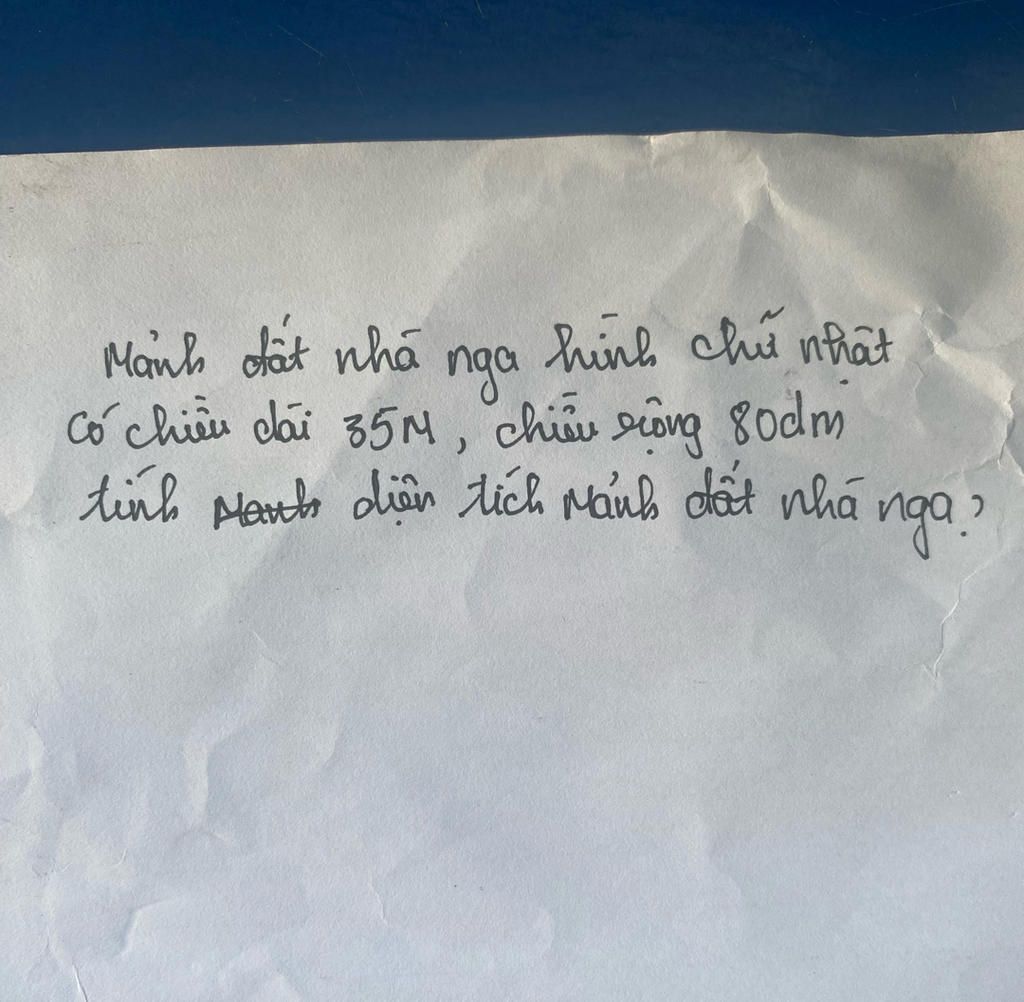 Mảnh đất nhà nga hình chữ nhật
có chiều dài 35M, chiều rộng 80dm
tính Manh diện tích Mảnh đất nhà nga?